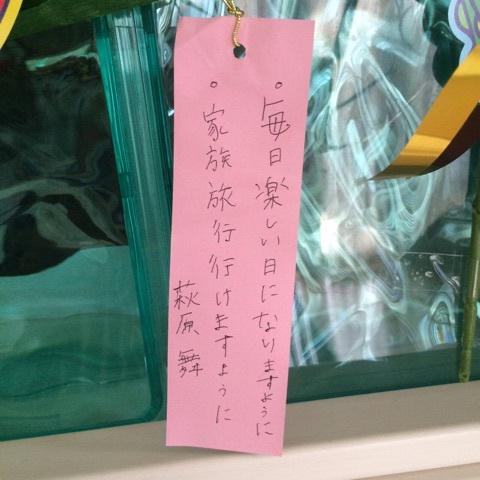 。毎日楽しい日になりますように
。家族旅行行けますように
萩原舞